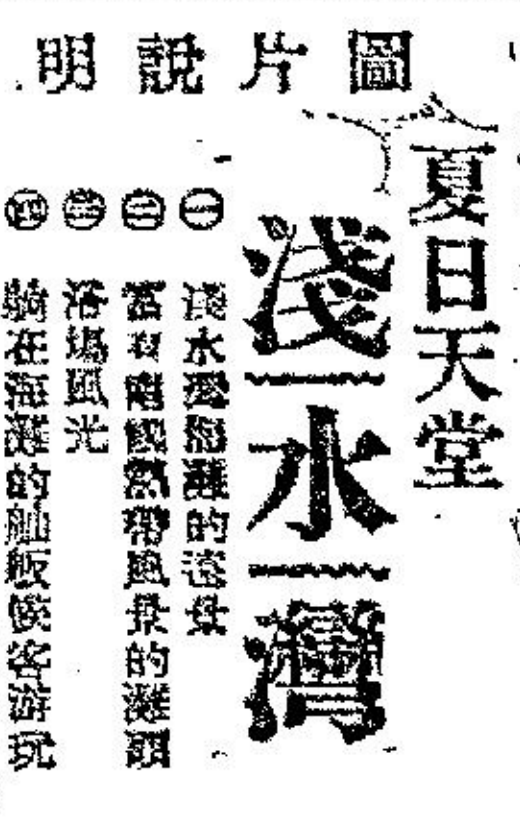 圖片說明
夏日天堂
淺水灣
㊀ 淺水灣海灘的遠景
㊁ 富有南國熱帶風景的灘頭
㊂ 浴場風光
㊃ 在海灘的舢舨候客游玩